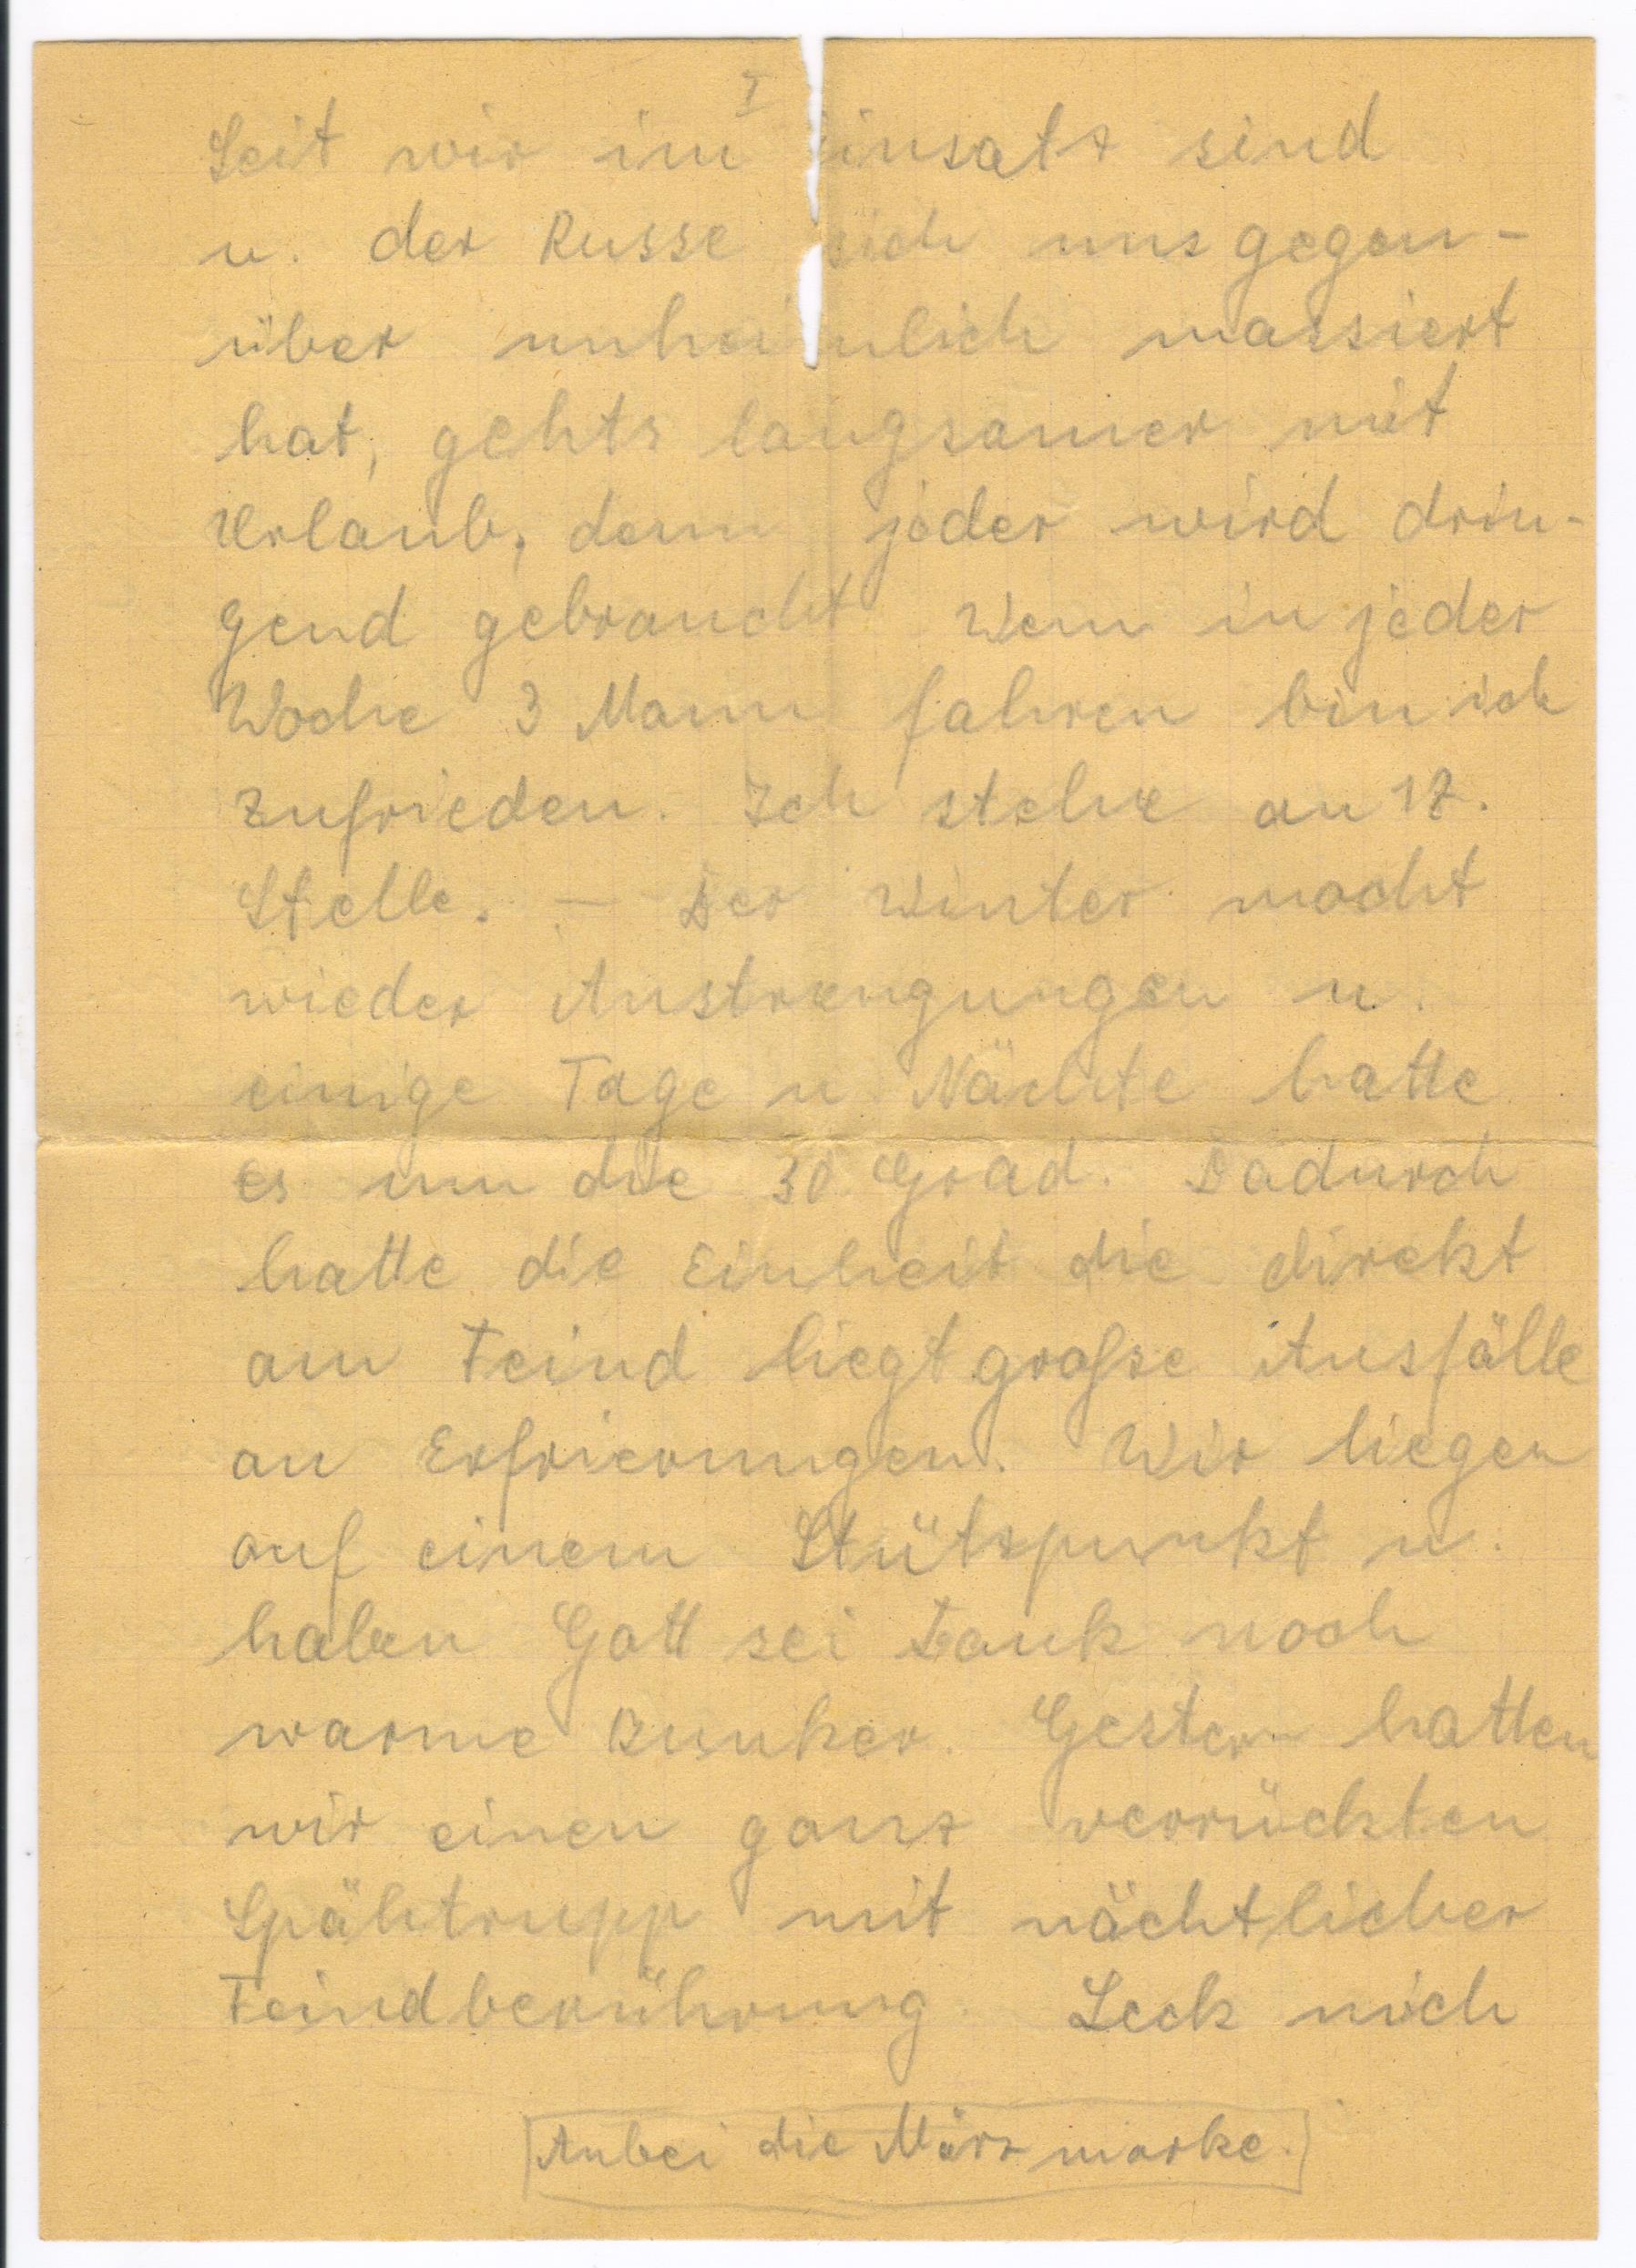 I
Seit wir im Einsatz sind
u. der Russe sich uns gegen-
über unheimlich massiert
hat, gehts langsamer mit
Urlaub, denn jeder wird drin-
gend gebraucht Wenn in jeder
Woche 3 Mann fahren bin ich
zufrieden. Ich stehe an 17.
Stelle. — Der Winter macht
wieder Anstrengungen u.
einige Tage u. Nächte hatte
es um die 30 Grad. Dadurch
hatte die Einheit die direkt
am Feind liegt grosse Ausfälle
an Erfrierungen. Wir liegen
auf einem Stützpunkt u.
haben Gott sei Dank noch
warme Bunker. Gestern hatten
wir einen ganz verrückten
Spähtrupp mit nächtlicher
Feindberührung. Leck mich
Anbei die März marke.